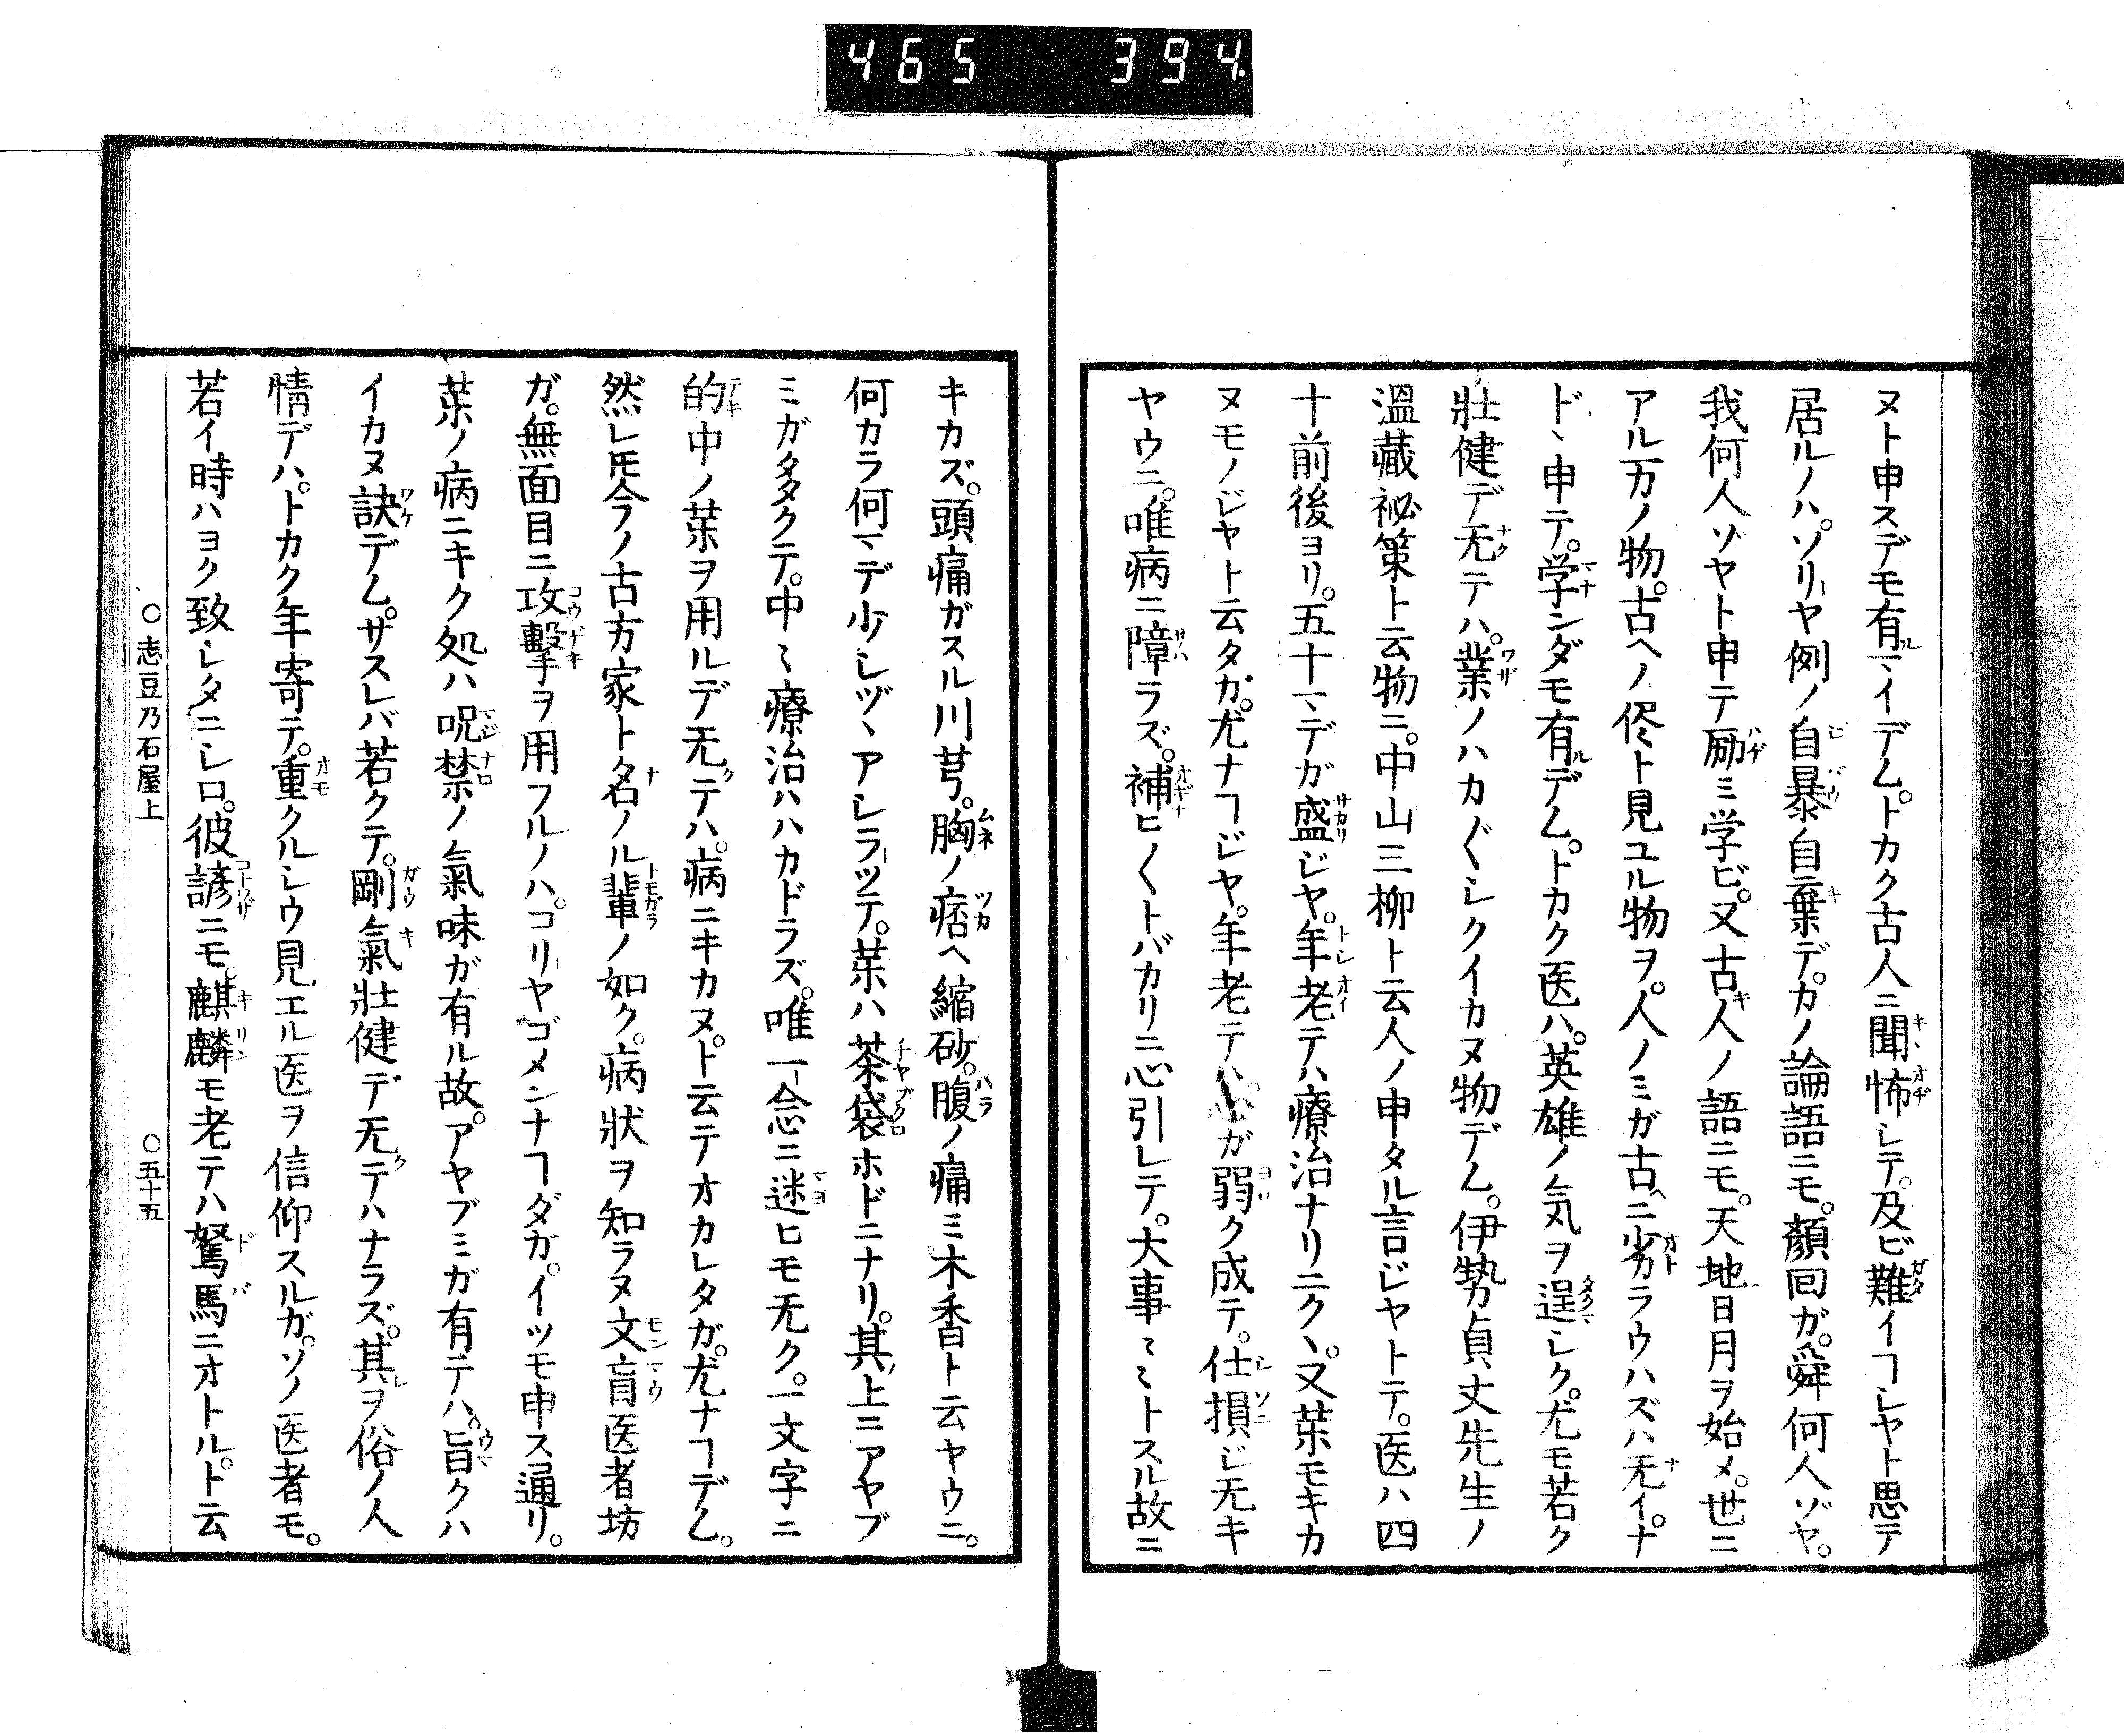 465 394
ヌト申スデモ有マイデム。トカク古人ニ聞怖シテ。及ビ難イヿシヤト思テ
居ルノハ。ソリヤ例ノ自暴自棄デ。カノ論語ニモ。顔回ガ。舜何人ゾヤ。
我何人ゾヤト申テ励ミ学ビ。又古人ノ語ニモ。天地日月ヲ始メ。世ニ
アル万ノ物。古ヘノ侭ト見ユル物ヲ。人ノミガ古ニ劣ラウハズハ无イ。ナ
ドヽ申テ。学ンダモ有デム。トカク医ハ。英雄ノ気ヲ逞シク。尤モ若ク
壮健デ无テハ。業ノハカ〴〵シクイカヌ物デム。伊勢貞丈先生ノ
溫藏祕策ト云物ニ。中山三柳ト云人ノ申タル言ジヤトテ。医ハ四
十前後ヨリ。五十マデガ盛ジヤ。年老テハ療治ナリニクヽ。又薬モキカ
ヌモノジヤト云タガ。尤ナヿジヤ。年老テハ心ガ弱ク成テ。仕損ジ无キ
ヤウニ。唯病ニ障ラズ。補ヒ〳〵トバカリニ心引レテ。大事〻〻トスル故ニ
キカズ。頭痛ガスル川芎。胸ノ痞ヘ縮砂。腹ノ痛ミ木香ト云ヤウニ。
何カラ何マデ少シヅヽアシラツテ。薬ハ茶袋ホドニナリ。其上ニアヤブ
ミガタタクテ。中〻療治ハハカドラズ。唯一念ニ迷ヒモ无ク。一文字ニ
的中ノ薬ヲ用ルデ无テハ。病ニキカヌ。ト云テオカレタガ。尤ナヿデム。
然レ𪜈今ノ古方家ト名ノル輩ノ如ク。病状ヲ知ラヌ文盲医者坊
ガ。無面目ニ攻擊ヲ用フルノハ。コリヤゴメンナヿダガ。イツモ申ス通リ。
薬ノ病ニキク処ハ呪禁ノ氣味ガ有ル故。アヤブミガ有テハ。旨クハ
イカヌ訣デム。サスレバ若クテ。剛氣壮健デ无テハナラズ。其ヲ俗ノ人
情デハ。トカク年寄テ。重クルシウ見エル医ヲ信仰スルガ。ソノ医者モ。
若イ時ハヨク致シタニシロ。彼諺ニモ。麒麟モ老テハ駑馬ニオトルト云
○志豆乃石屋上 ○五十五